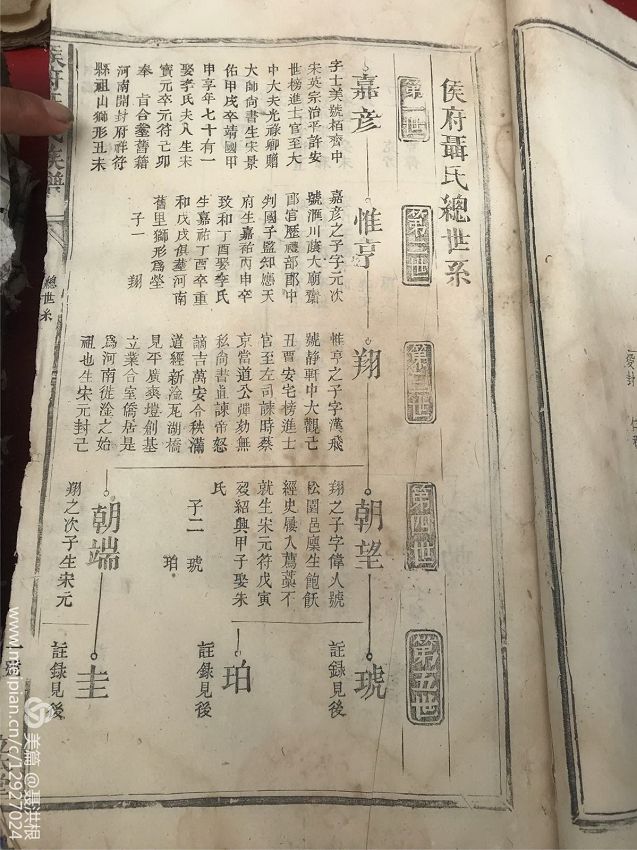 侯府聶氏總世系
第一世
第二世
第三世
第四世
第五世
嘉彦
字士美號栢齊中
宋英宗治平許安
世榜進士官至大
中大夫光祿卿贈
大師尚書生宋景
佑甲戌卒靖國甲
申享年七十有一
娶李氏夫人生宋
寶元卒元符己卯
奉 旨合塟舊籍
河南開封府祥符
縣祖山獅形丑未
惟亨
嘉彦之子字元次
號滙川廕大廟齋
郎官歷禮部郎中
列國子監知應天
府生嘉祐丙申卒
政和丁酉娶李氏
生嘉祐丁酉卒重
和戊戌俱塟河南
舊里獅形為塋
子一 翔
翔
惟亨之子字漢飛
號静軒中大觀己
丑賈安宅榜進士
官至左司諫時蔡
京當道公彈劾無
私尚書直諫帝怒
謫吉萬安令秩滿
道經新淦尾湖橋
見平廣奠壇創基
立業合室僑居是
為河南徙淦之始
祖也生宋元封己
朝望
翔之子字偉人號
松圃邑廩生飽飫
經史屢入薦藁不
就生宋元符戊寅
殁紹興甲子娶朱
氏
子二 琥
珀
朝端
翔之次子生宋元
琥
註錄見後
珀
註錄見後
圭
註錄見後
總世系
美篇@聶洪根
www.meipian.cn/c/12927024